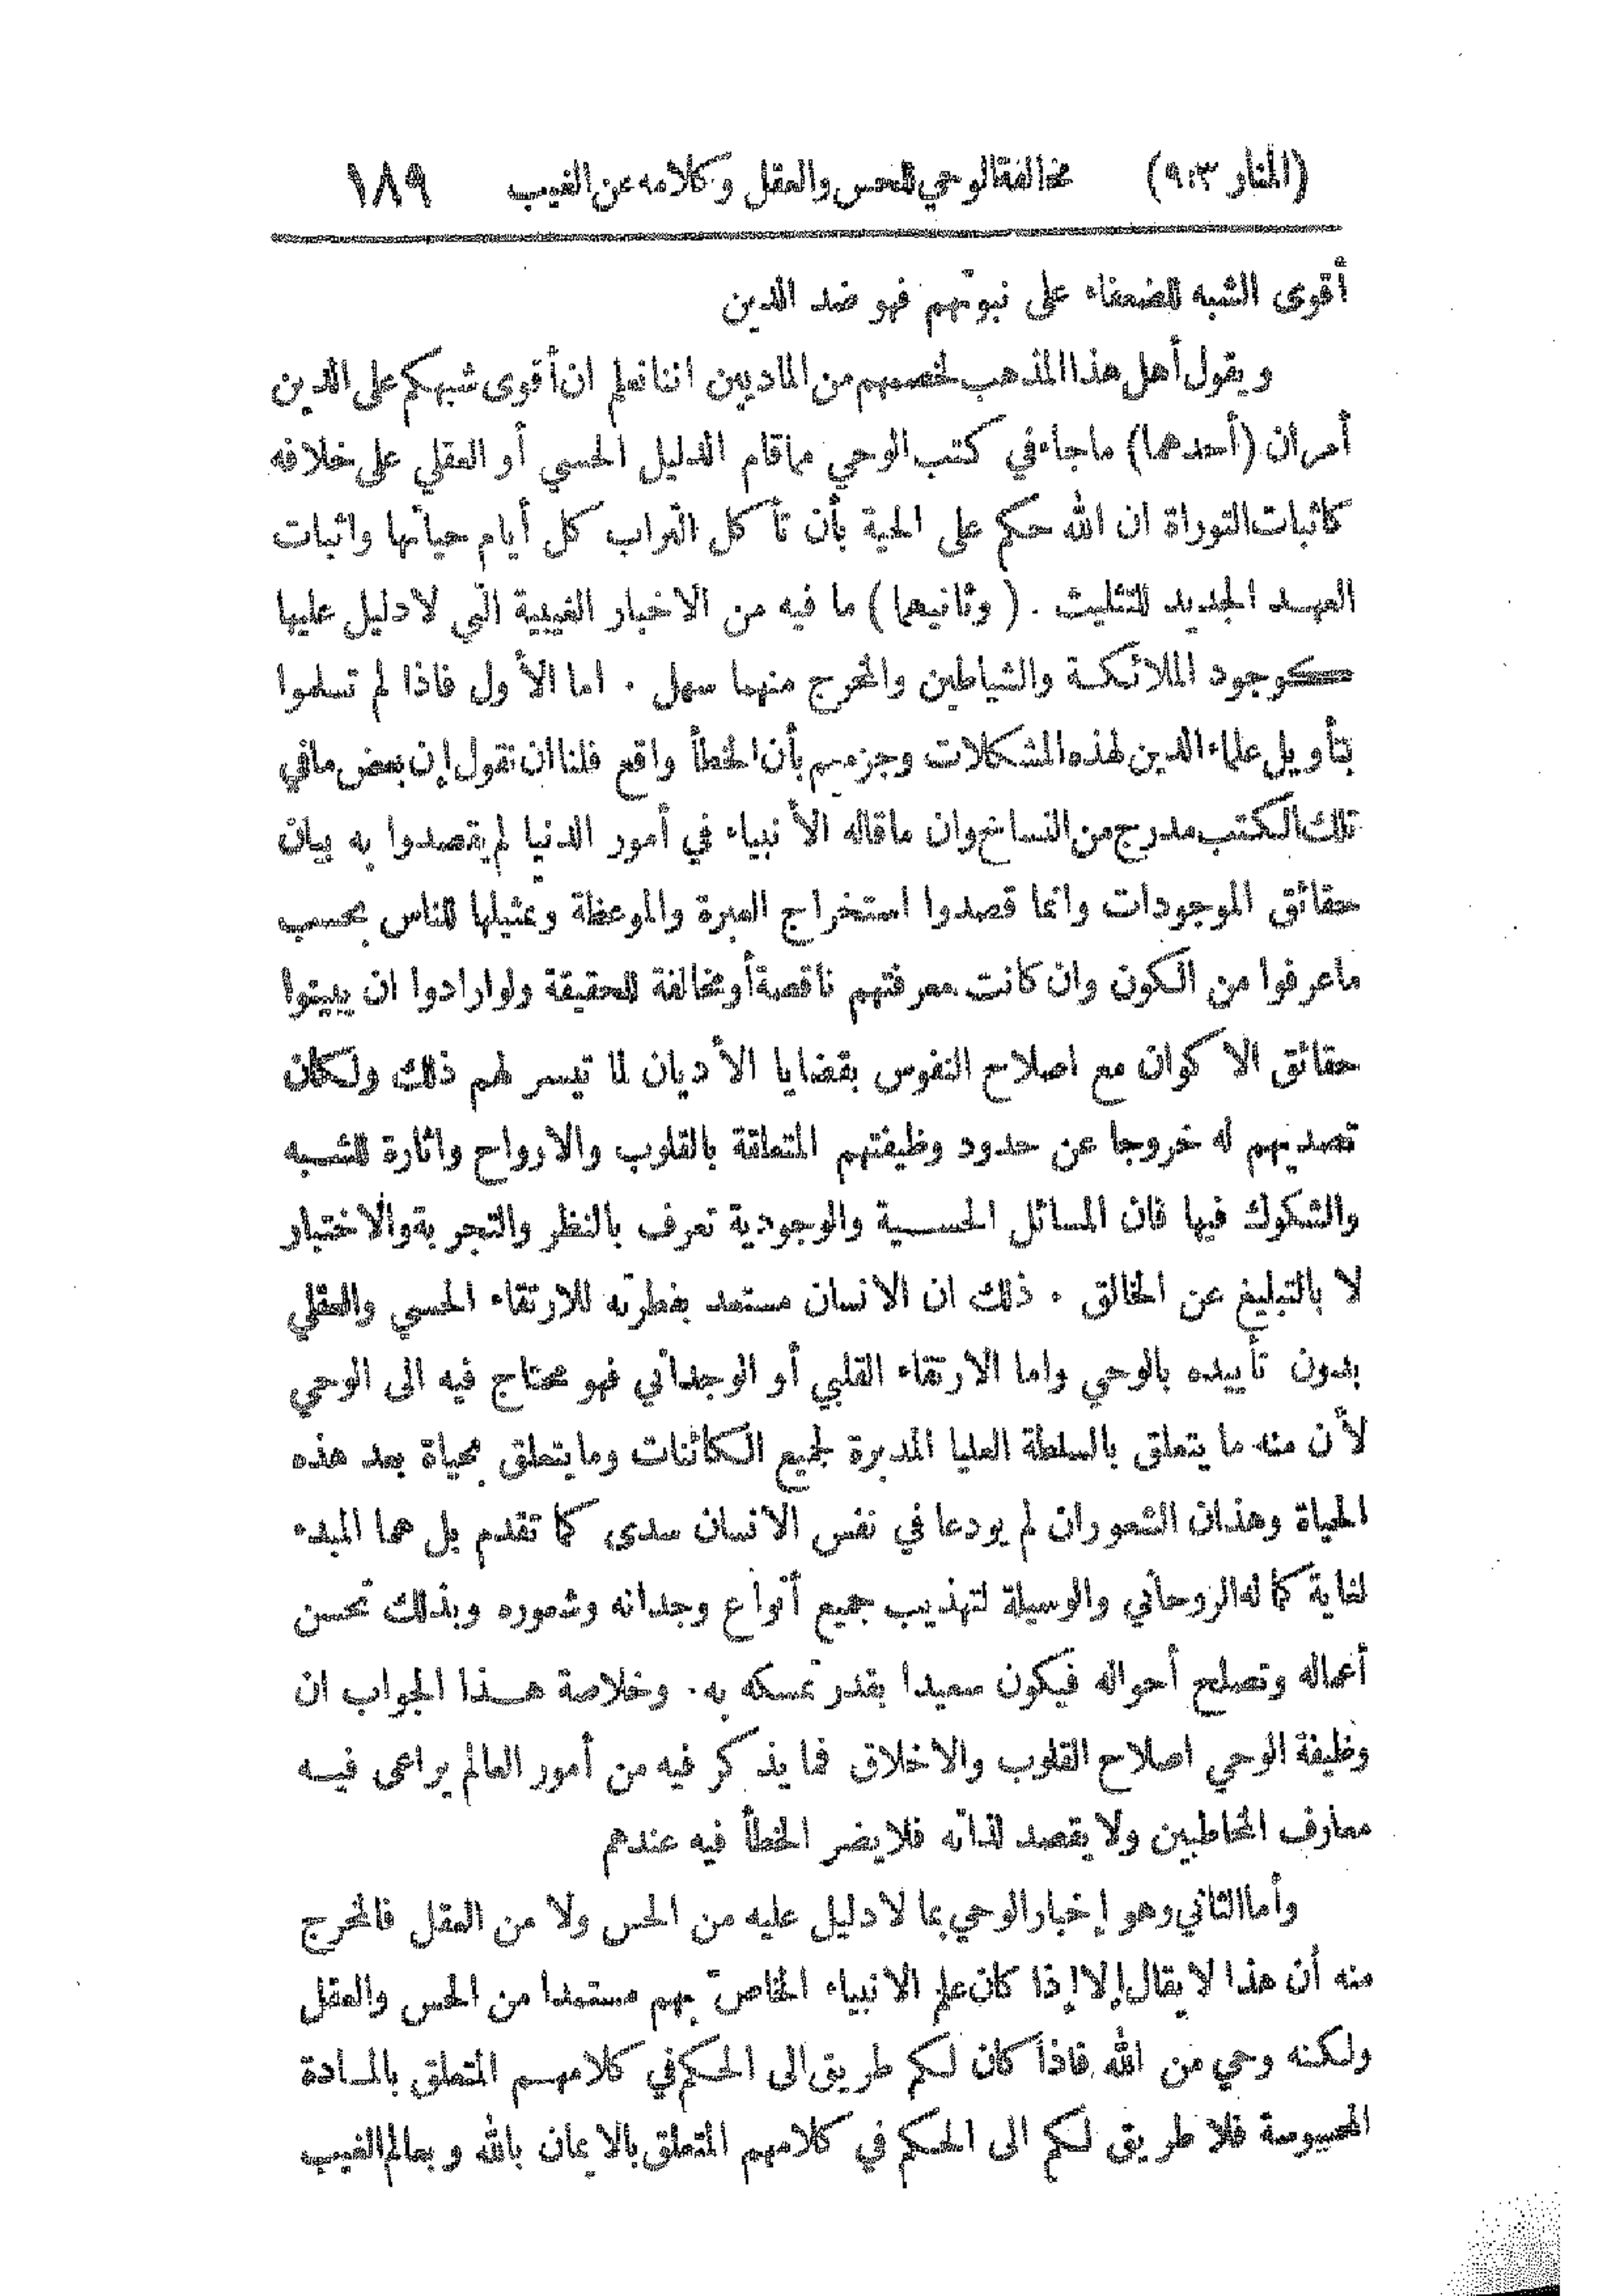 (المنار ٩:٣) مخالفة الوحي للحس والعقل وكلامه عن الغيب ١٨٩
أقوى الشبه للضعفاء على نبوتهم فهو ضد الدين
ويقول أهل هذا المذهب لخصمهم من الماديين اننا نعلم ان أقوى شبهكم على الدين
أمران (أحدهما) ما جاء في كتب الوحي مما قام الدليل الحسي أو العقلي على خلافه
كاثبات التوراة ان الله حكم على الحية بأن تأكل التراب كل أيام حياتها واثبات
العهد الجديد للتثليث . (وثانيهما) ما فيه من الاخبار الغيبية التي لا دليل عليها
كوجود الملائكة والشياطين والمخرج منهما سهل . اما الأول فاذا لم تسلموا
بتأويل علماء الدين لهذه المشكلات وجزمهم بأن الخطأ واقع فلنا ان نقول إن بعض ما في
تلك الكتب مدرج من النساخ وان ما قاله الأنبياء في أمور الدنيا لم يقصدوا به بيان
حقائق الموجودات وانما قصدوا استخراج العبرة والموعظة وتمثيلها للناس بحسب
ما عرفوا من الكون وان كانت معرفتهم ناقصة أو مخالفة للحقيقة ولو ارادوا ان يبينوا
حقائق الاكوان مع اصلاح النفوس بقضايا الأديان لما تيسر لهم ذلك ولكان
تصديهم له خروجا عن حدود وظيفتهم المتعلقة بالقلوب والارواح واثارة للشبه
والشكوك فيها فان المسائل الحسية والوجودية تعرف بالنظر والتجربة والاختبار
لا بالتبليغ عن الخالق . ذلك ان الانسان مستعد بفطرته للارتقاء الحسي والعقلي
بدون تأييده بالوحي واما الارتقاء القلبي أو الوجداني فهو محتاج فيه الى الوحي
لأن منه ما يتعلق بالسلطة العليا المدبرة لجميع الكائنات وما يتعلق بحياة بعد هذه
الحياة وهذان الشعوران لم يودعا في نفس الانسان سدى كما تقدم بل هما المبدء
لغاية كماله الروحاني والوسيلة لتهذيب جميع أنواع وجدانه وشعوره وبذلك تحسن
أعماله وتصلح أحواله فيكون سعيدا بقدر تمسكه به . وخلاصة هذا الجواب ان
وظيفة الوحي اصلاح القلوب والاخلاق فما يذكر فيه من أمور العالم يراعى فيه
معارف المخاطبين ولا يقصد لذاته فلا يضر الخطأ فيه عندهم
وأما الثاني وهو إخبار الوحي بما لا دليل عليه من الحس ولا من العقل فالمخرج
منه أن هذا لا يقال إلا إذا كان علم الانبياء الخاصّ بهم مستمدا من الحس والعقل
ولكنه وحي من الله فاذا كان لكم طريق الى الحكم في كلامهم المتعلق بالمادة
المحسوسة فلا طريق لكم الى الحكم في كلامهم المتعلق بالايمان بالله وبعالم الغيب